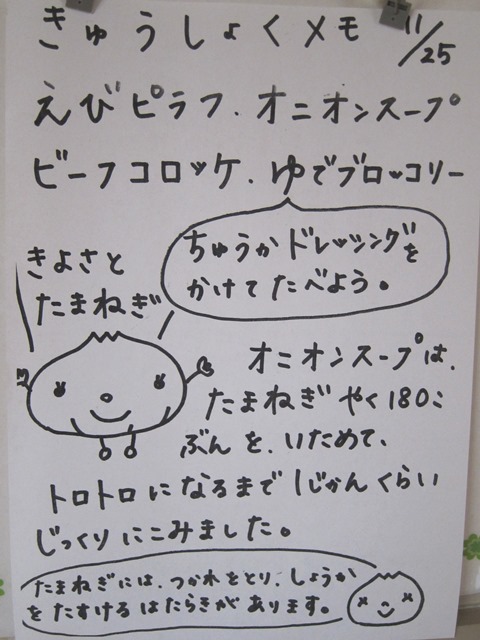 きゅうしょくメモ 11/25
えびピラフ.オニオンスープ
ビーフコロッケ.ゆでブロッコリー
ちゅうかドレッシングを
かけてたべよう。
きよさと
たまねぎ
オニオンスープは、
たまねぎやく180こ
ぶんを、いためて、
トロトロになるまで1じかんくらい
じっくりにこみました。
たまねぎには、つかれをとり、しょうか
をたすけるはたらきがあります。